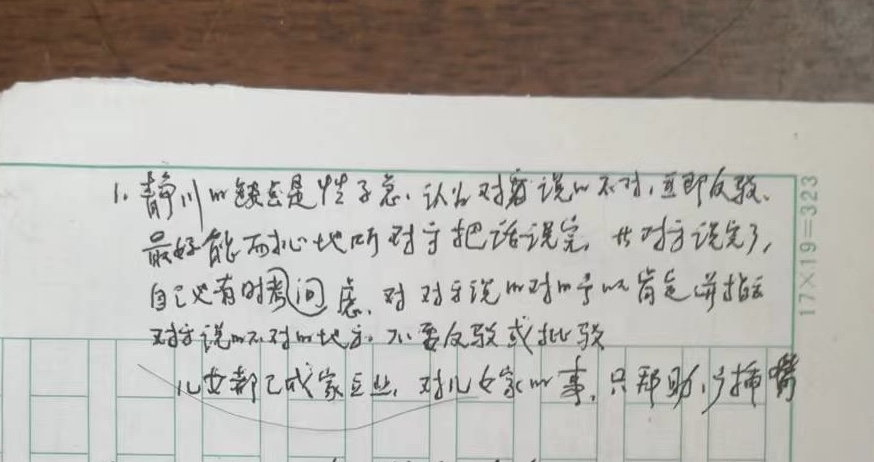 1. 静川的缺点是性子急、认为对方说的不对，立即反驳、
最好能耐心地听对方把话说完，等对方说完了，
自己也有时间考虑、对对方说的对的予以肯定并指出
对方说的不对的地方。不要反驳或批驳
儿女都已成家立业，对儿女家的事，只帮助，少插嘴
17×19=323